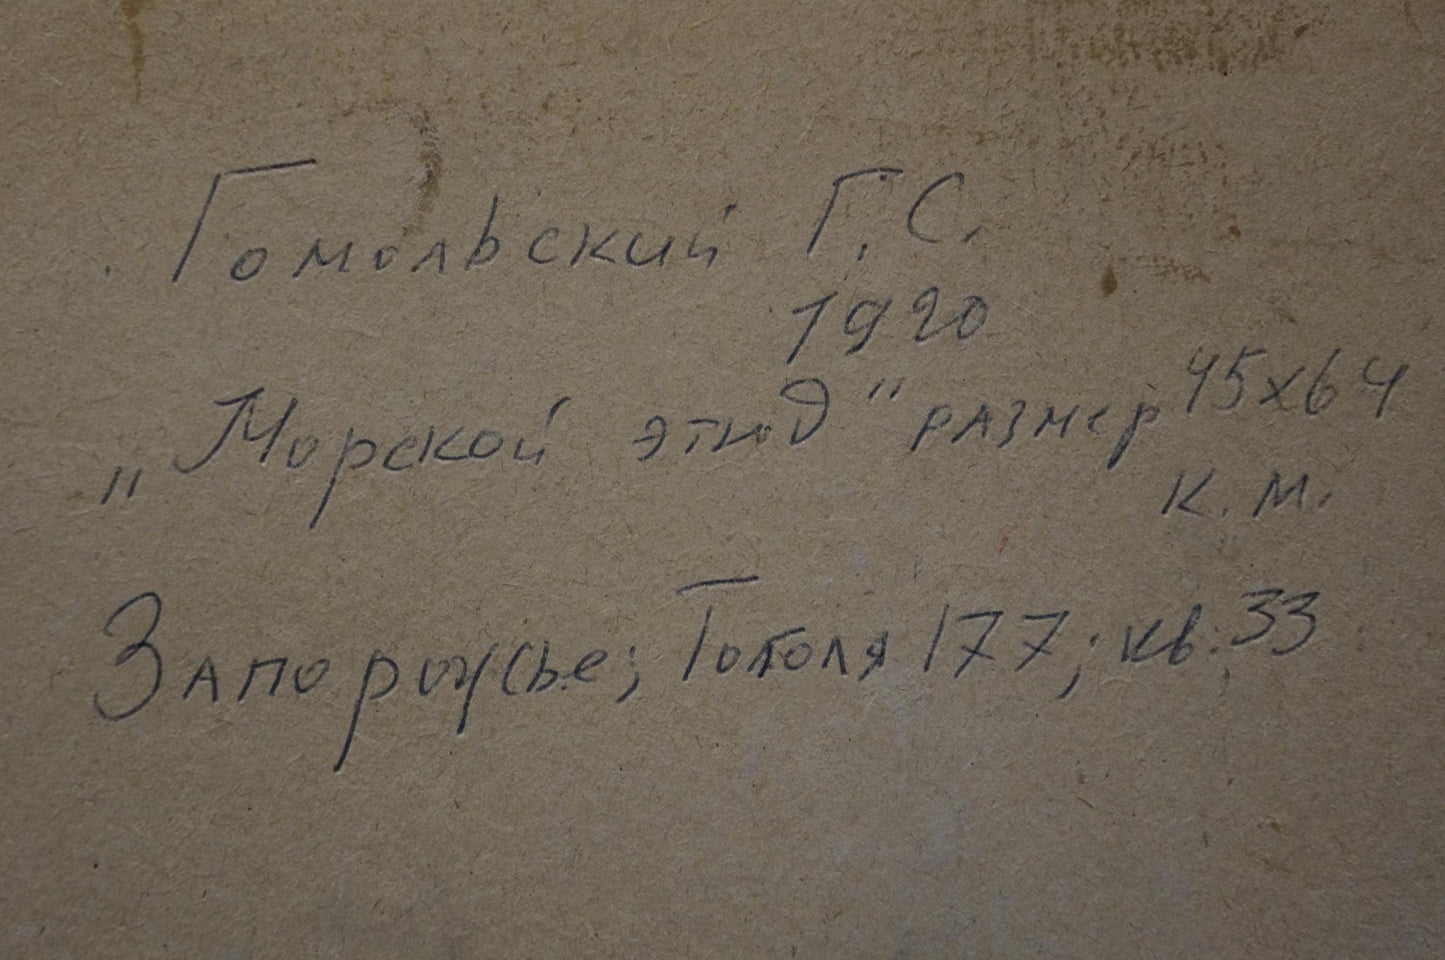 Гомольский Г.С.
1920
„Морской этюд" размер 45х64
к.м.
Запорожье; Гоголя 177; кв. 33